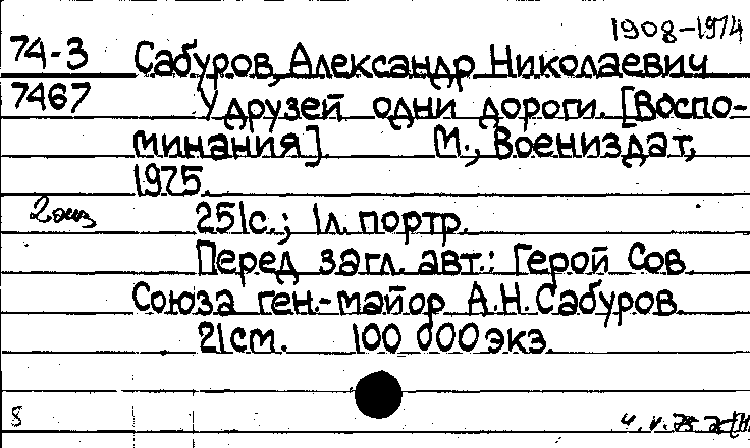 1908-1974
74-3 Сабуров, Александр Николаевич
7467 У друзей одни дороги. [Воспо-
минания]. М., Воениздат,
1975.
2 экз 251с.; 1л. портр.
Перед загл. авт.: Герой Сов.
Союза ген.-майор А.Н. Сабуров.
21см. 100 000 экз.
8